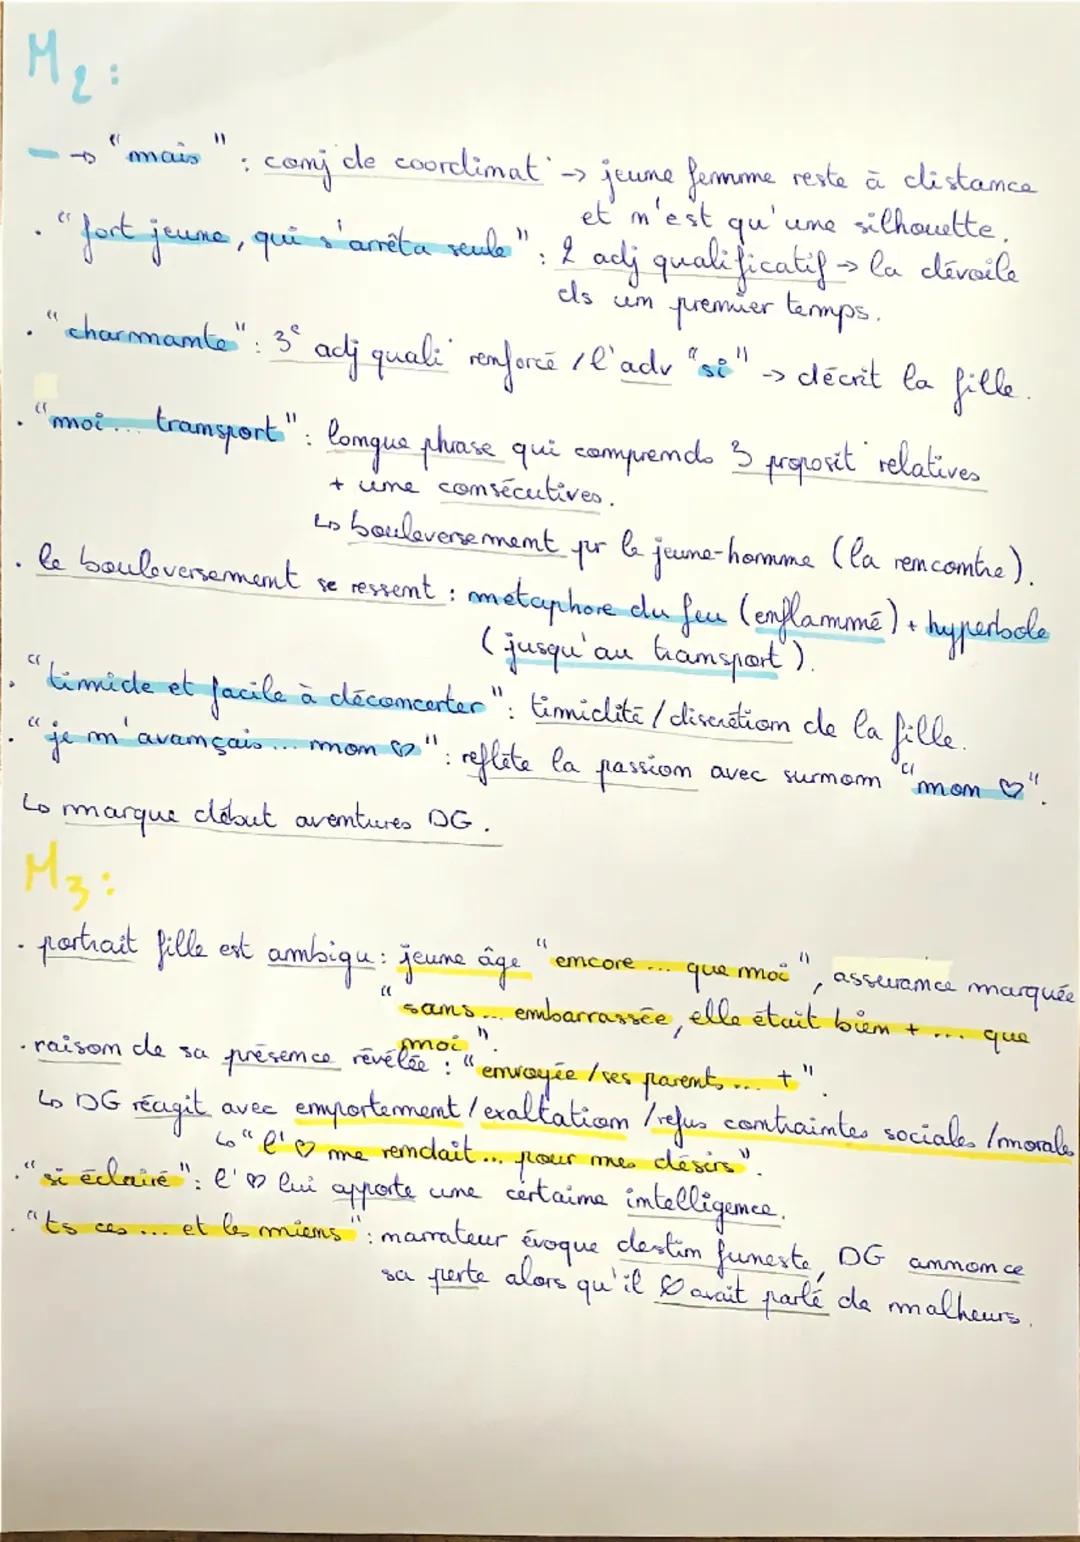 M2 :
→ "mais" : conj° de coordinat° → jeune femme reste à distance
et n'est qu'une silhouette.
. "fort jeune, qui s'arrêta seule" : 2 adj qualificatif → la dévoile
ds un premier temps.
. "charmante" : 3e adj quali° renforcé / l'adv "si" → décrit la fille.
. "moi... transport" : longue phrase qui comprends 3 proposit° relatives
+ une consécutives.
↳ bouleversement pr le jeune-homme (la rencontre).
. le bouleversement se ressent : métaphore du feu (enflammé) + hyperbole
(jusqu'au transport).
. "timide et facile à déconcerter" : timidité / discrétion de la fille.
. "je m'avançais... mon ♡" : reflète la passion avec surnom "mon ♡".
↳ marque début aventures DG.
M3 :
. portrait fille est ambigu : jeune âge "encore ... que moi", assurance marquée
"sans ... embarrassée, elle était bien + ... que
moi".
. raison de sa présence révélée : "envoyée / ses parents ... +"
↳ DG réagit avec emportement / exaltation / refus contraintes sociales / morales
↳ "l'♡ me rendait ... pour mes désirs".
. "si éclairé" : l'♡ lui apporte une certaine intelligence.
. "ts ces ... et les miens" : narrateur évoque destin funeste, DG annonce
sa perte alors qu'il avait parlé de malheurs.